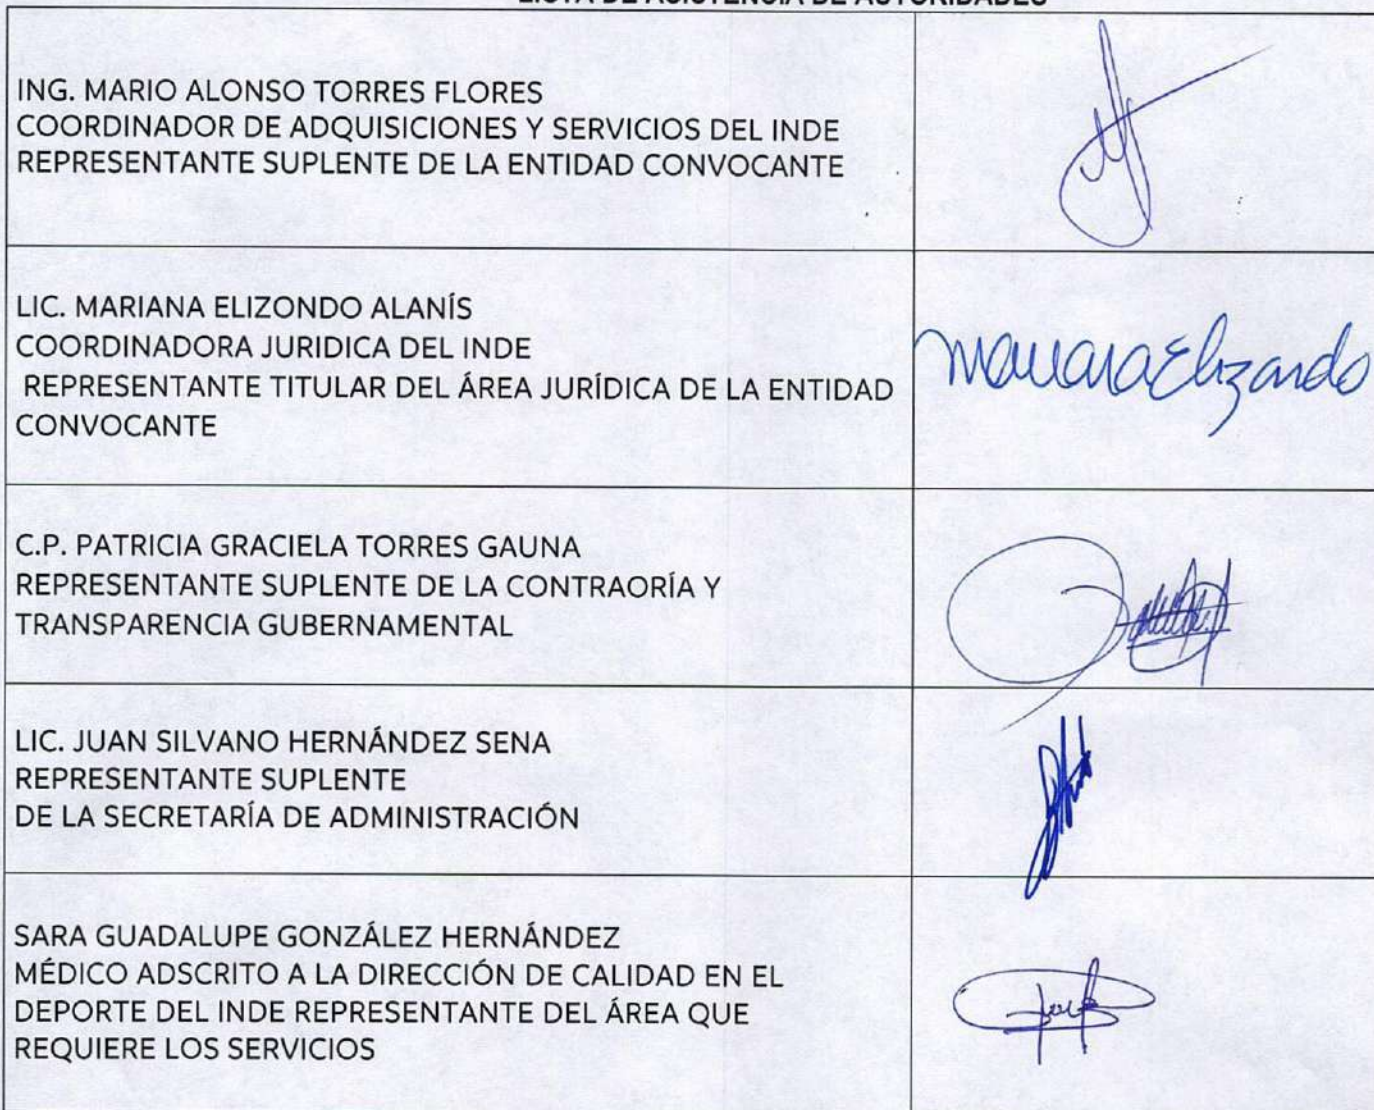 LISTA DE ASISTENCIA DE AUTORIDADES
ING. MARIO ALONSO TORRES FLORES
COORDINADOR DE ADQUISICIONES Y SERVICIOS DEL INDE
REPRESENTANTE SUPLENTE DE LA ENTIDAD CONVOCANTE
LIC. MARIANA ELIZONDO ALANÍS
COORDINADORA JURIDICA DEL INDE
REPRESENTANTE TITULAR DEL ÁREA JURÍDICA DE LA ENTIDAD
CONVOCANTE
Mariana Elizondo
C.P. PATRICIA GRACIELA TORRES GAUNA
REPRESENTANTE SUPLENTE DE LA CONTRAORÍA Y
TRANSPARENCIA GUBERNAMENTAL
LIC. JUAN SILVANO HERNÁNDEZ SENA
REPRESENTANTE SUPLENTE
DE LA SECRETARÍA DE ADMINISTRACIÓN
SARA GUADALUPE GONZÁLEZ HERNÁNDEZ
MÉDICO ADSCRITO A LA DIRECCIÓN DE CALIDAD EN EL
DEPORTE DEL INDE REPRESENTANTE DEL ÁREA QUE
REQUIERE LOS SERVICIOS